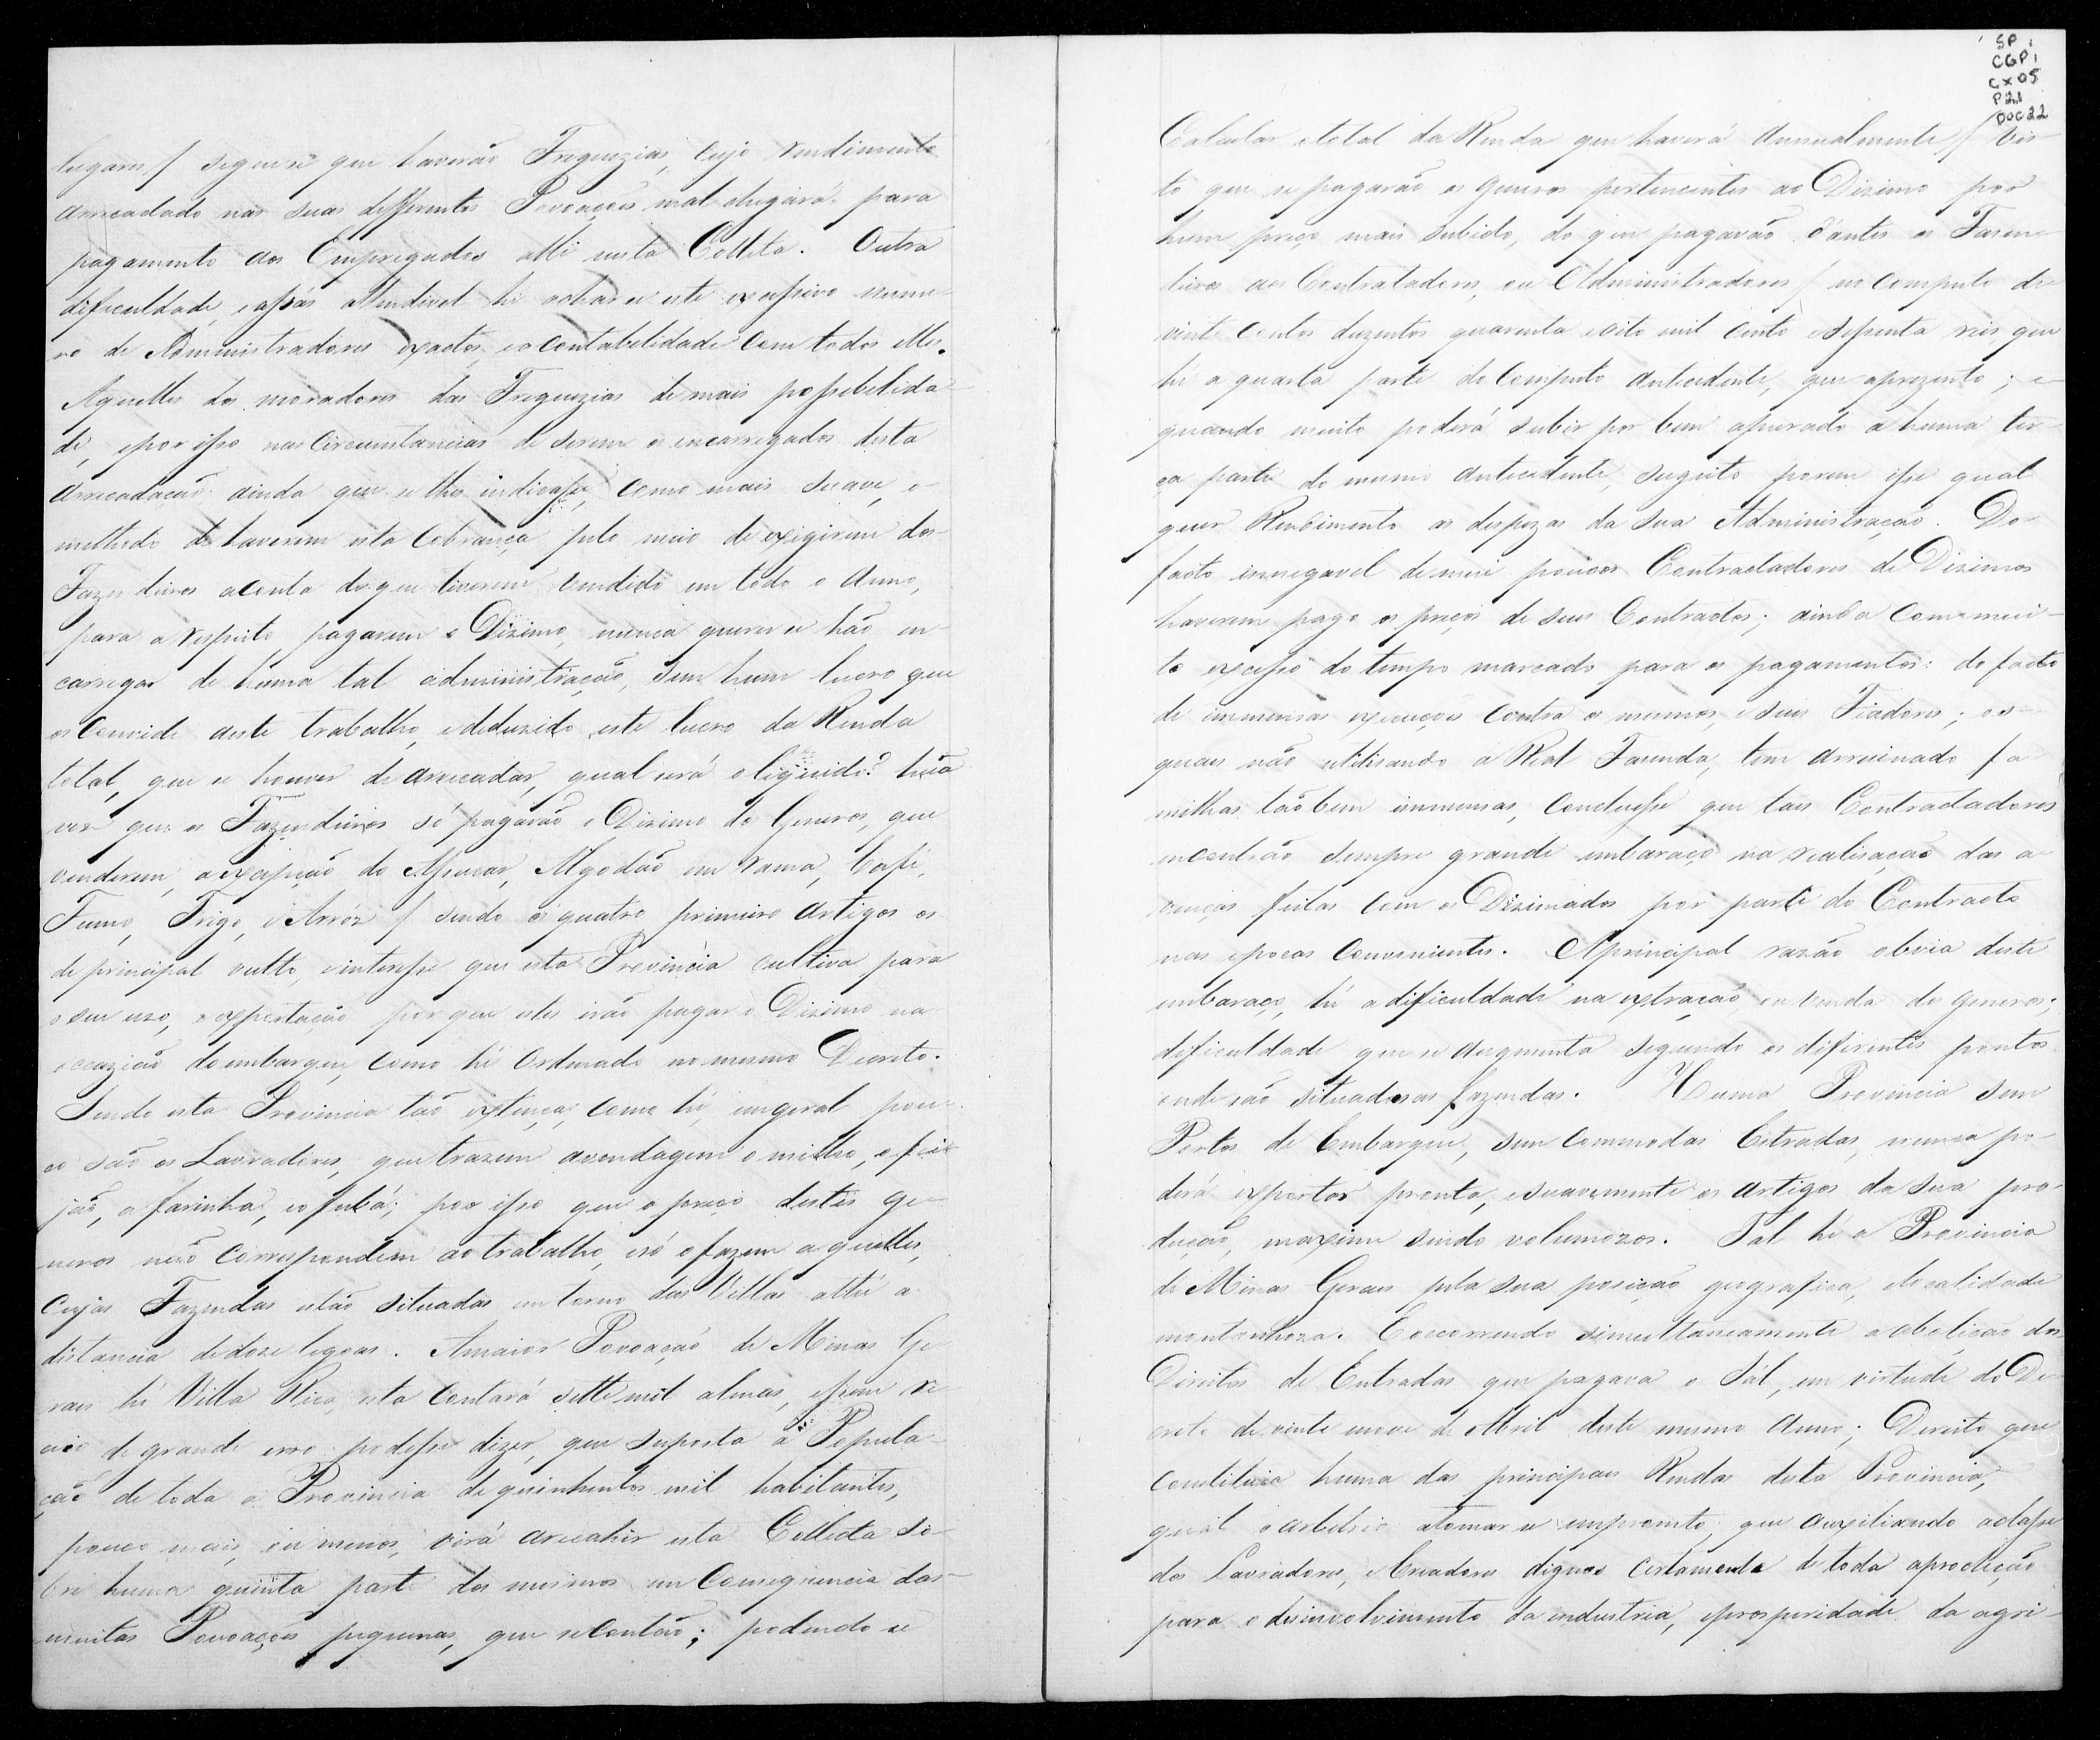 lugares / seguese que haverão Freguezias, cujo rendimento
arrecadado nas suas differentes Povoações mal chegará para
pagamento dos Empregados alli nesta Colleta. Outra
dificuldade, e assás attendivel hé achar-se este excessivo nume-
ro de Administradores exactos, e a contabelidade com todos elles.
Aquelles dos moradores das Freguezias de mais possebelida-
de, e por isso nas Circumstancias de serem os encarregados desta
arrecadação ainda que se lhes indicasse, como mais suave, o
methodo de haverem esta Cobrança pelo meio de exigirem dos
Fazendeiros a conta do que tiverem vendido em todo o Anno,
para a respeito pagarem o Dizimo, nunca querer-se hão en-
carregar de huma tal administração, sem hum lucro que
os Convide a este trabalho, e deduzido este lucro da Renda
total, que se houver de arrecadar, qual será o liquido? húa
vez que os Fazendeiros só pagarão o Dizimo do Generos, que
venderem, a excepção do Assucar, Algodão em rama, Café,
Fumo, Trigo, e Arróz / sendo os quatro primeiros Artigos os
de principal vulto, e interesse que esta Provincia cultiva para
o seu uzo, e exportação por que estes irão pagar o Dizimo na
occazião do embarque, como hé Ordenado no mesmo Decreto.
Sendo esta Provincia tão extença, como hé, em geral pou-
co são os Lavradores, que trazem a vendagem o milho, o fei-
jão, a farinha, e o fubá; por isso que o preço destes ge-
neros não Correspondem ao trabalho, e só o fazem aquelles,
Cujas Fazendas estão situadas em torno das Villas athé a
distancia de doze legoas. A maior Povoação de Minas Ge-
raes hé Villa Rica, esta Contará sette mil almas, e sem re-
ceio de grande erro podesse dizer, que suposta a Popula-
ção de toda a Provincia de quinhentos mil habitantes,
pouco mais, ou menos, virá a recahir esta Collecta so-
bre huma quinta parte dos mesmos em Consequencia das
muitas Povoações pequenas, que se Contão; podendo se
SP
CGP1
CX05
P21
DOC22
Calcular o total da Renda que haverá Annualmente / vis-
to que se pagarão os generos pertencentes ao Dizimo por
hum preço mais subido, do que pagavão d'antes os Fazen-
deiros aos Contratadores, ou Administradores / no computo de
vinte contos duzentos quarenta e oito mil cento e sessenta reis, que
hé a quarta parte do Computo Antecedente, que aprezento; e
quando muito poderá subir por bem apurado a huma ter-
ça parte do mesmo Antecedente, sugeito porem esse qual
quer Rendimento as despezas da sua Administração. Do
facto innegavel de mui poucos Contractadores de Dizimos
haverem pago os preços de seus Contractos; ainda com mui-
to excesso do tempo marcado para os pagamentos: do facto
de immensas execuções contra os mesmos, e seus Fiadores; as
quaes não utilisando a Real Fazenda, tem arruinado fa-
milhas tão bem immensas, Conclue-se que taes Contractadores
encontrão sempre grande embaraço na realisação das a-
venças feitas com os Dizimados por parte do Contracto
nas epocas Convenientes. A principal razão obvia deste
embaraço, hé a dificuldade na extração, ou venda do generos;
dificuldade que se augmenta segundo os diferentes pontos
onde são situadas as fazendas. Huma Provincia sem
Portos de Embarque, sem Commodas Estradas, nunca po-
derá exportar pronta, e suavemente os Artigos da Sua pro-
dução, maxime sendo volumozos. Tal hé a Provincia
de Minas Geraes pela sua posição geografica, e localidade
montanhoza. E occorrendo simultaneamente a abolição dos
Direitos de Entradas que pagava o Sál, em virtude do De-
creto de vinte nove de Abril deste mesmo Anno; Direito que
constituia huma das principaes Rendas desta Provincia,
qual o arbitrio a tomar-se em promto, que auxiliando a classe
dos Lavradores, e Creadores dignos certamente de toda aproteição
para o desinvolvimento da industria, e prosperidade da agri-